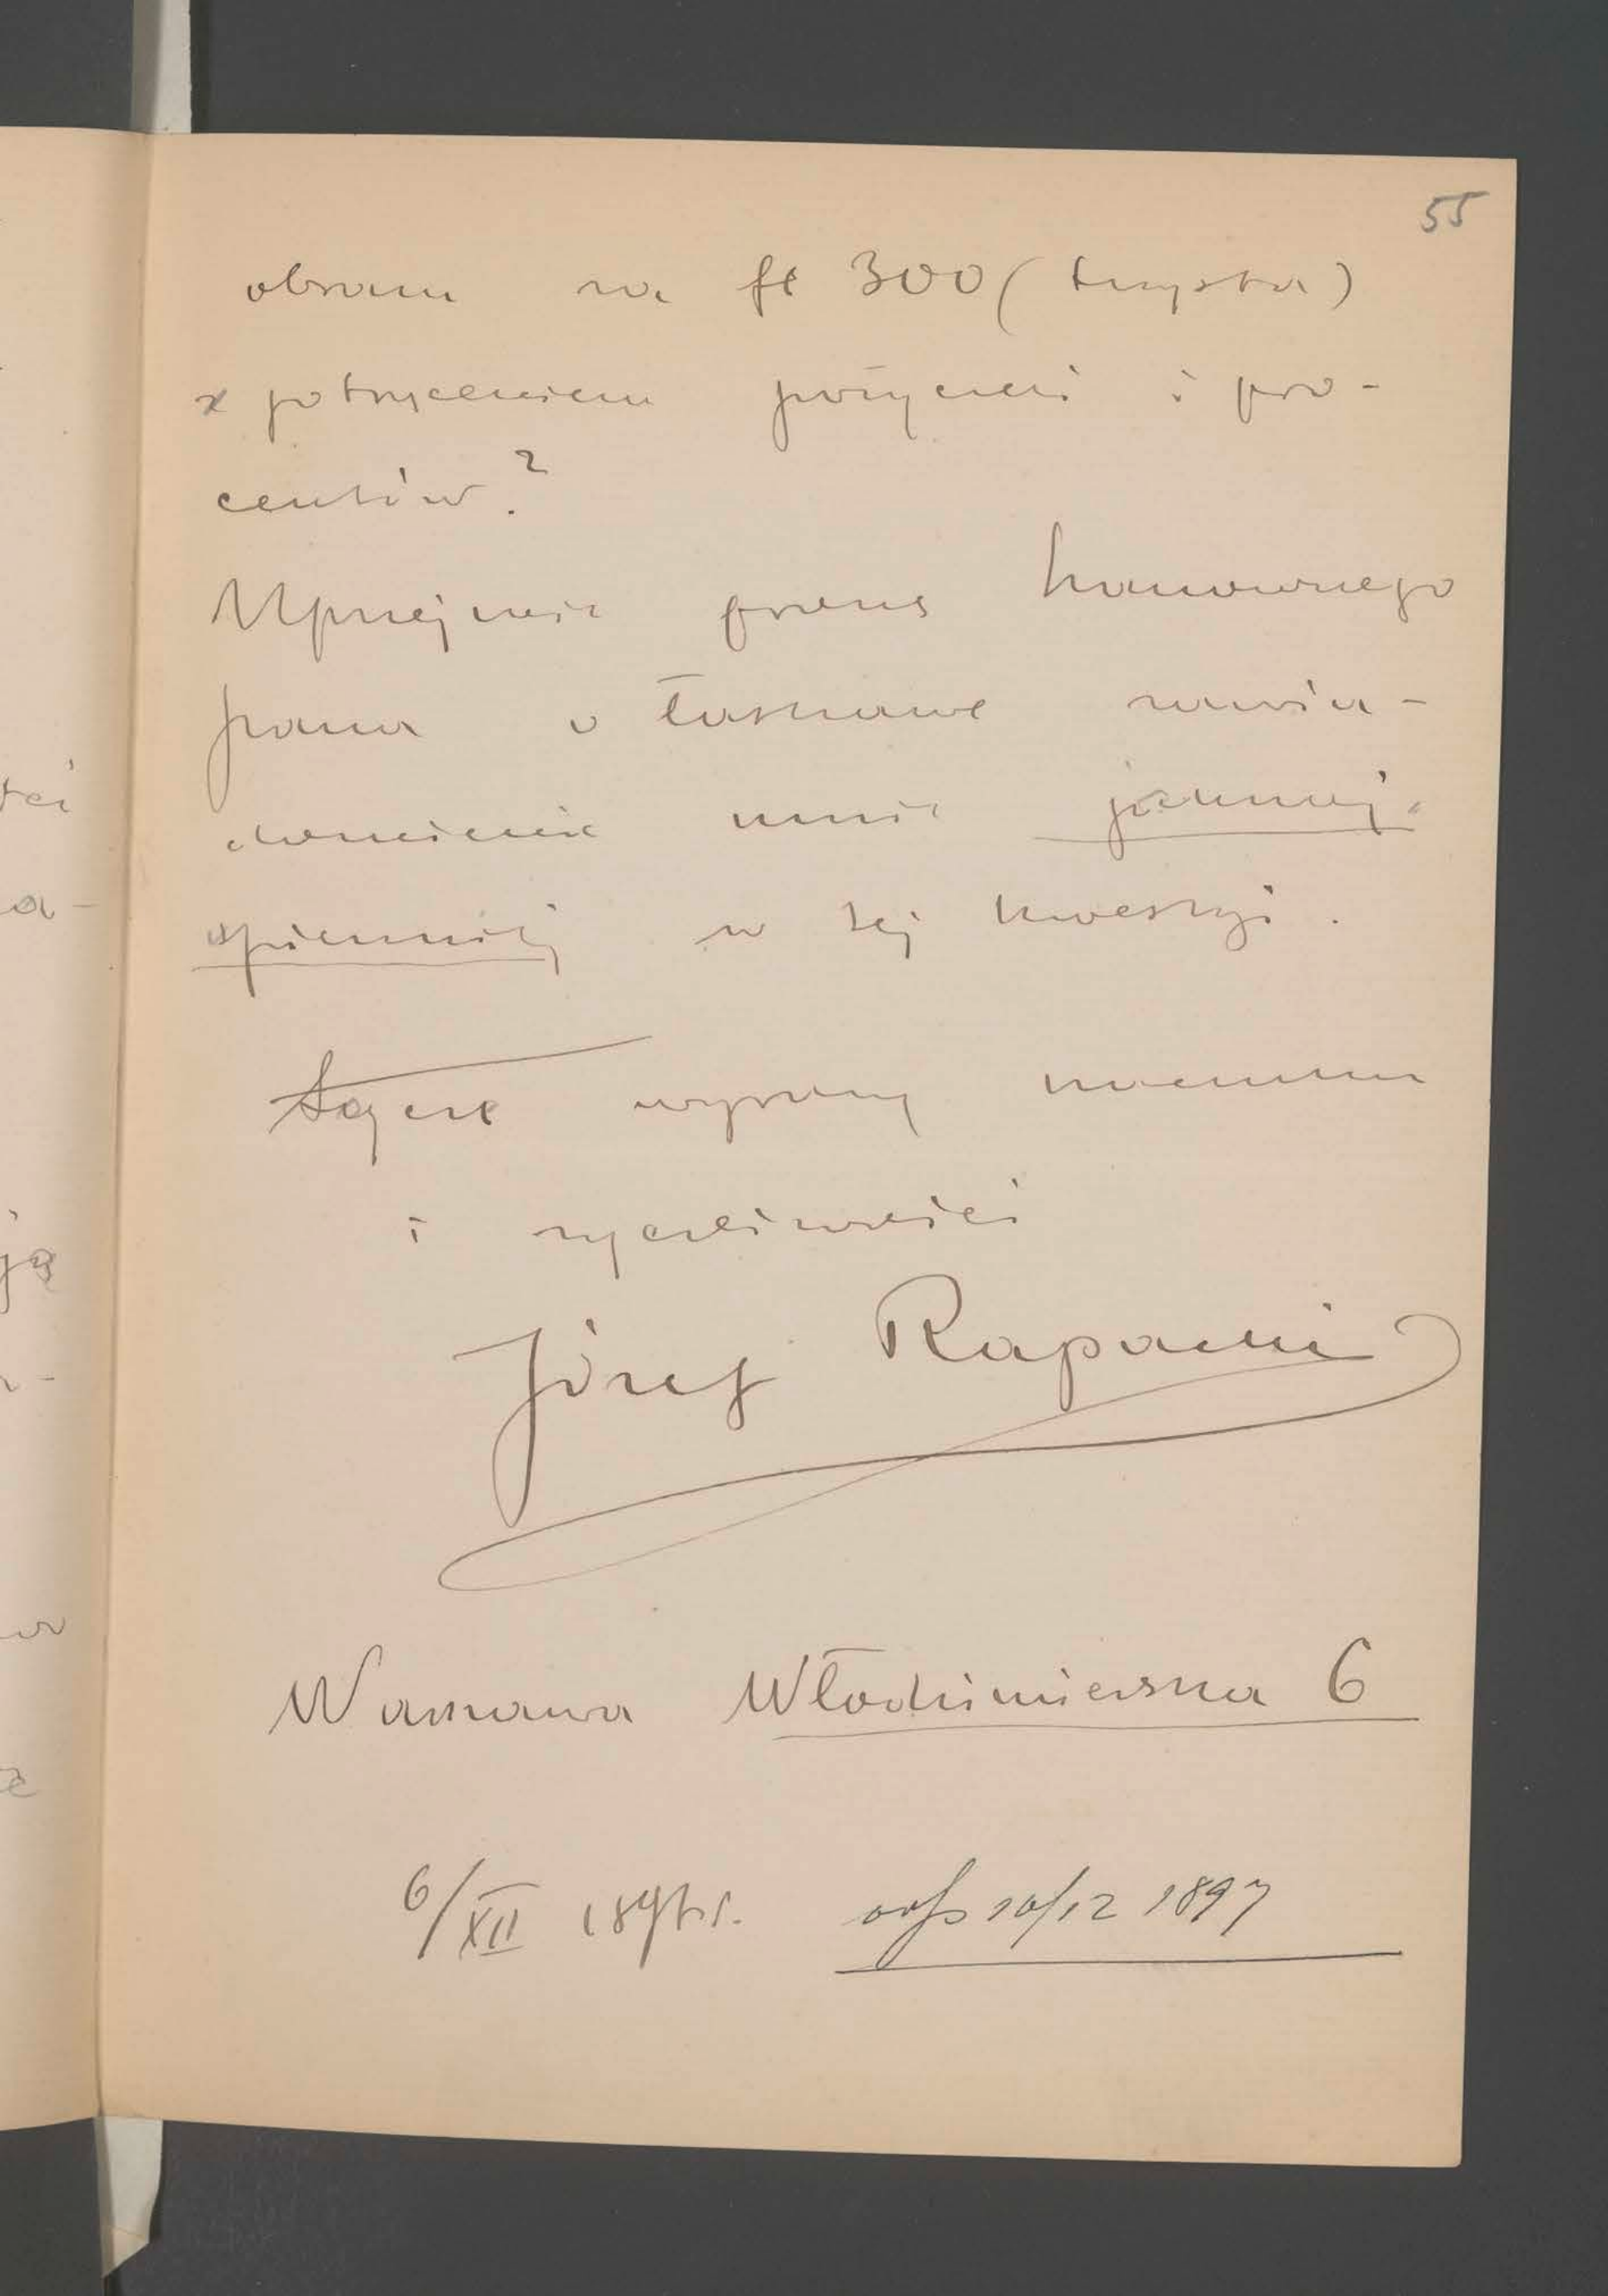 55
obrazu za fl 300 (trzysta)
z potrąceniem pożyczki i pro-
centów?
Uprzejmie proszę Szanownego
pana o łaskawe zawia-
domienie mnie jaknaj-
spieszniej w tej kwestyi.
Łączę wyrazy szacunku
i życzliwości
Józef Rapacki
Warszawa Włodzimierska 6
6/XII 1897 r. odp 10/12 1897